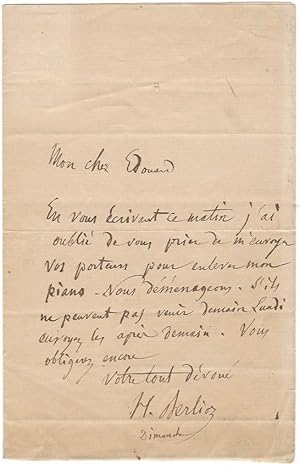 Mon cher Edouard
En vous écrivant ce matin j'ai
oublié de vous prier de m'envoyer
vos porteurs pour enlever mon
piano. Nous demenageons. S'ils
ne peuvent pas venir demain Lundi
envoyez les après demain. Vous
obligerez encore
Votre tout dévoué
H. Berlioz
Dimanche